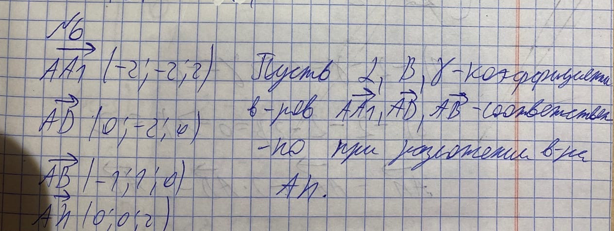 №6
AA1 (-2; -2; 2)
AD (0; -2; 0)
AB (-1; 1; 0)
Ah (0; 0; 2)
Пусть α, β, γ - коэффициенты
в-ров AA1, AD, AB - соответствен
-но при разложении в-ра
Ah.